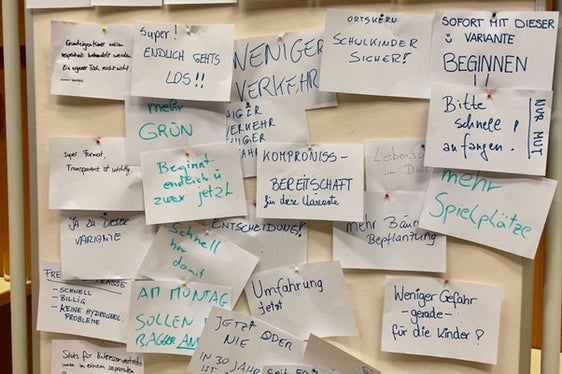 Grundeigentümer sollen
respektvoll behandelt werden
Ein eigener Tisch reicht nicht.
Super!
ENDLICH GEHTS
LOS!!
WENIGER
VERKEHR
ORTSKERN
SCHULKINDER
SICHER!
SOFORT MIT DIESER
VARIANTE
BEGINNEN
!!
mehr
GRÜN
VERKEHR
VERKEHR
Bitte
schnell !
anfangen.
NUR MUT
Super Format,
Transparent ist wichtig
Beginnt
endlich u
zwar jetzt
KOMPROMISS-
BEREITSCHAFT
für diese Variante
im Dorf
mehr
Spielplätze
JA ZU DIESER
VARIANTE
Schnell
her
damit
ENTSCHEIDUNG!
mehr Bäum
Bepflanzung
- SCHNELL
- BILLIG
- KEINE HYDROGEOL.
PROBLEME
AM MONTAG
SOLLEN
BAGGER
Umfahrung
jetzt
Weniger Gefahr
- gerade -
für die Kinder!
JETZT ODER
NIE
IN 30 JAHR
IST